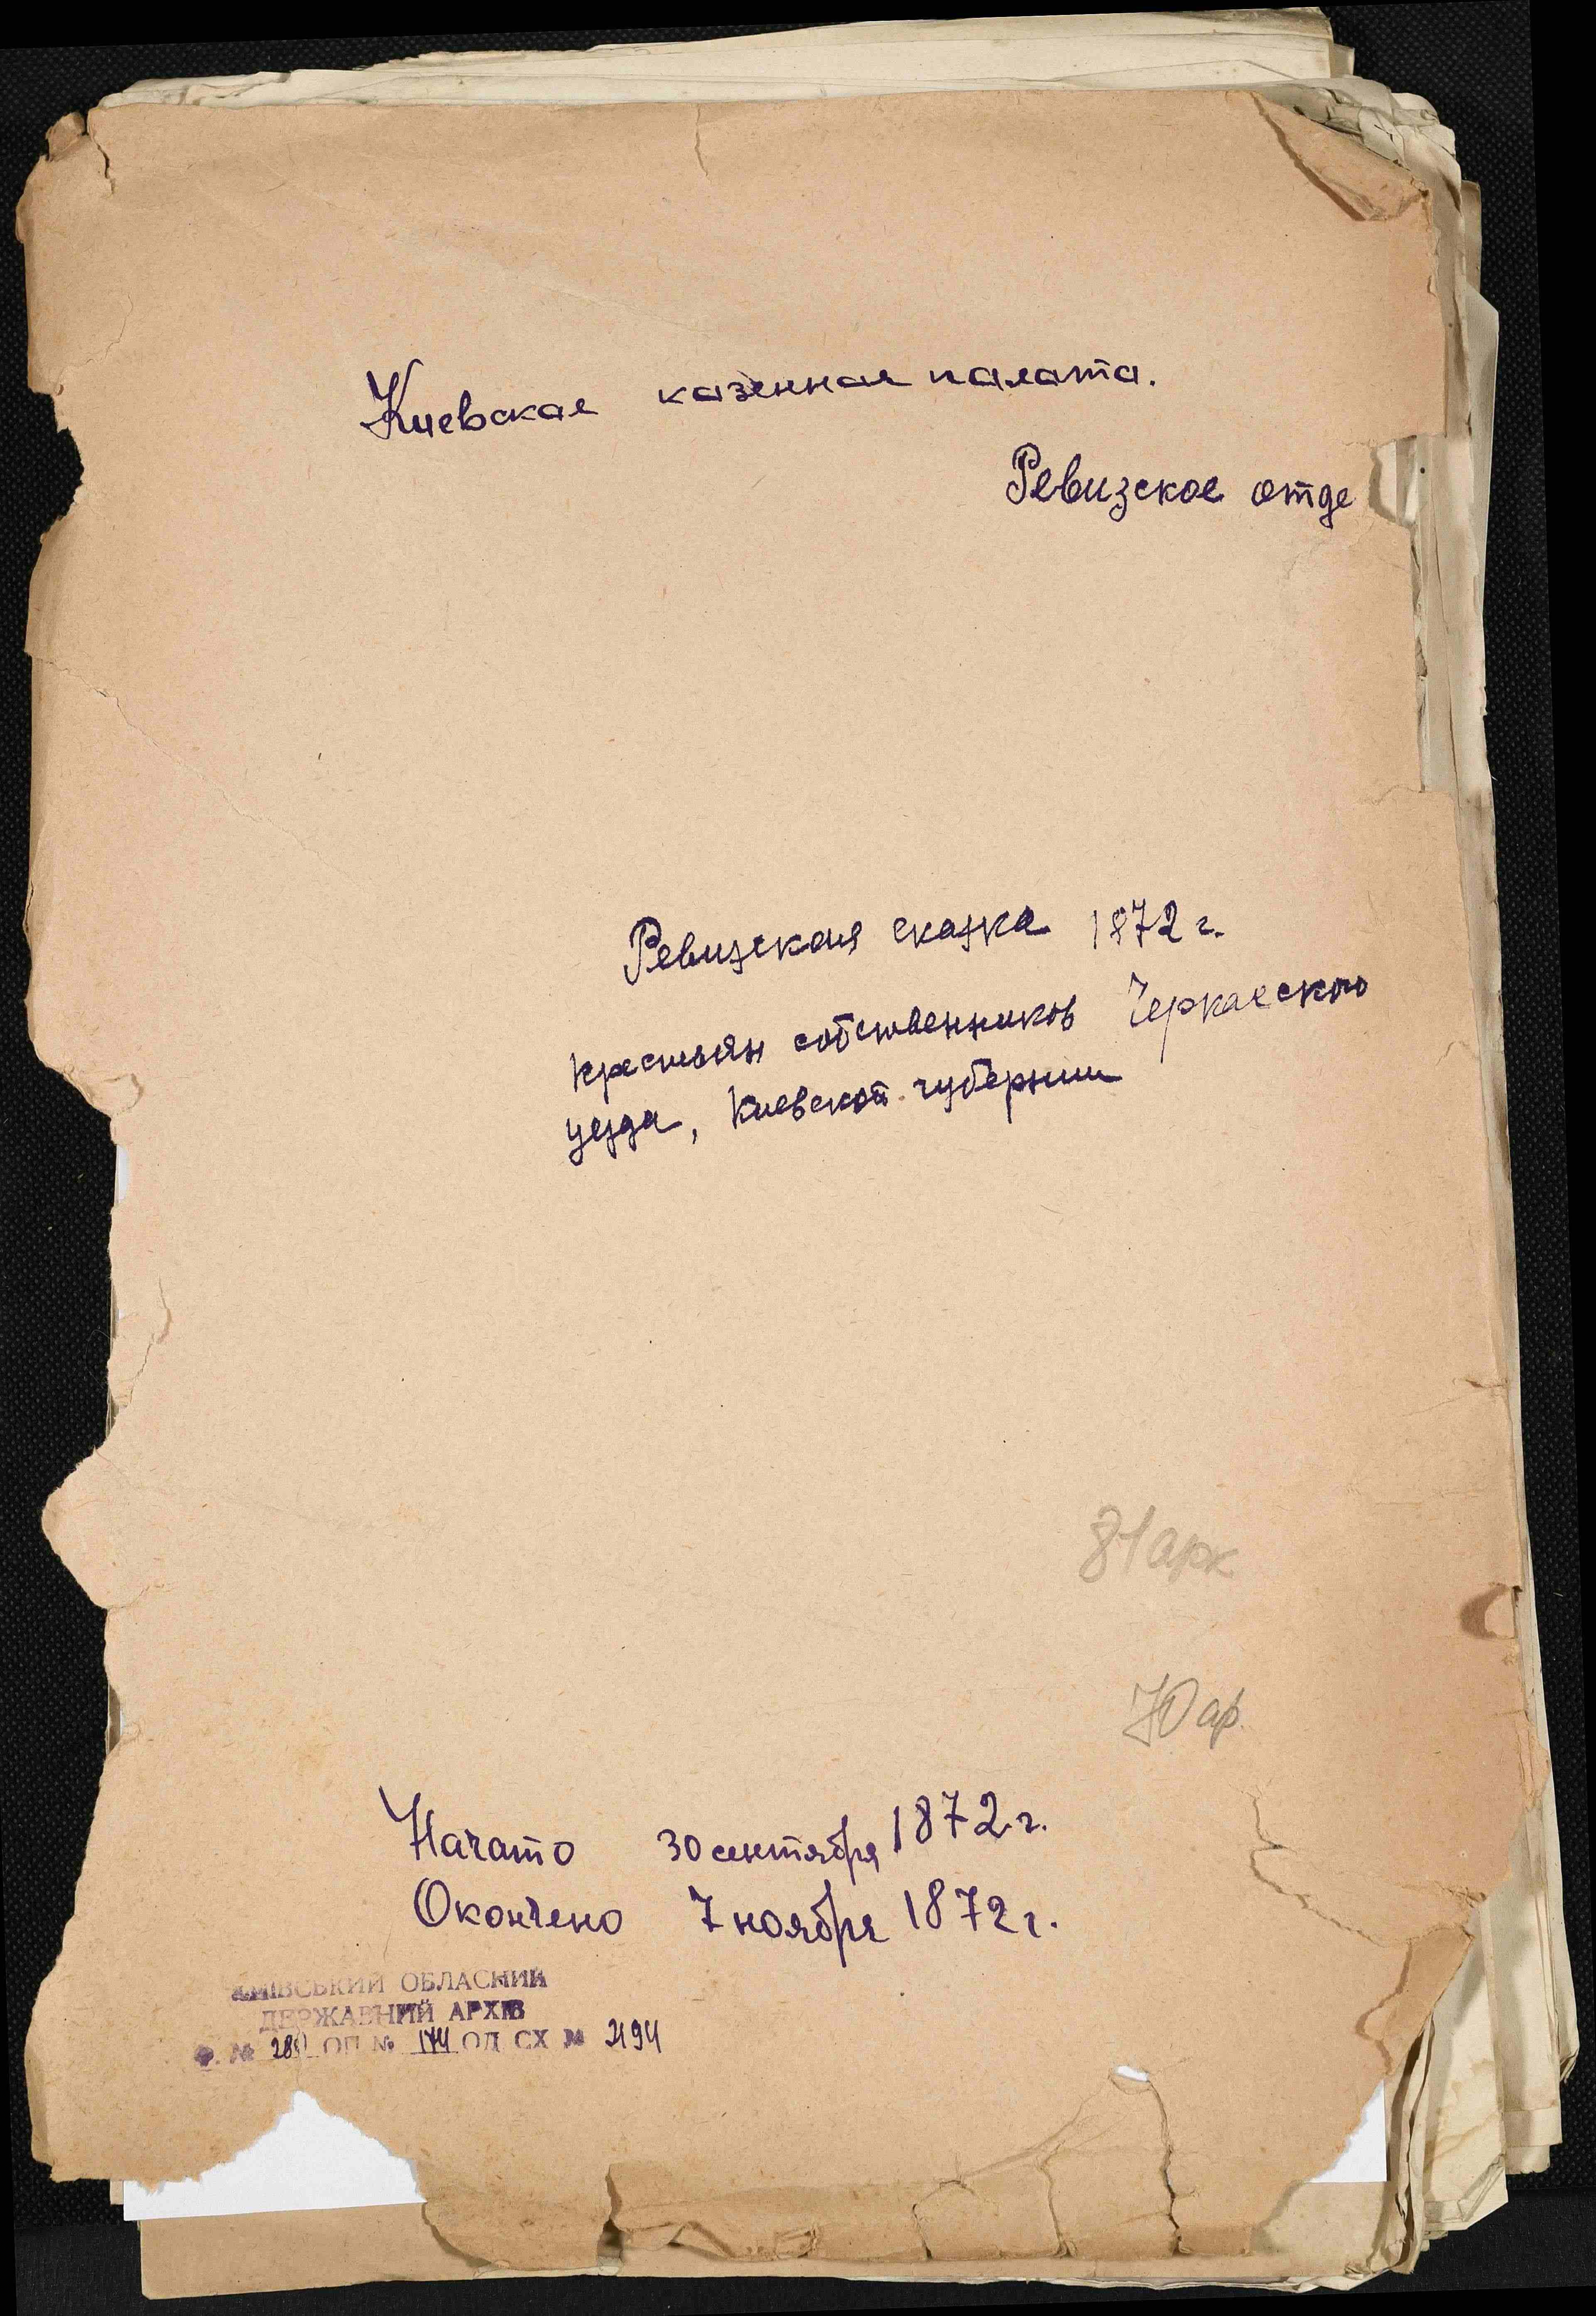 Киевская казенная палата.
Ревизское отде
Ревизская сказка 1872 г.
крестьян собственников Черкасского
уезда, Киевской губернии
81 арк
70 ар.
Начато 30 сентября 1872 г.
Окончено 7 ноября 1872 г.
КИЇВСЬКИЙ ОБЛАСНИЙ
ДЕРЖАВНИЙ АРХІВ
Ф. № 280 ОП № 174 ОД СХ №